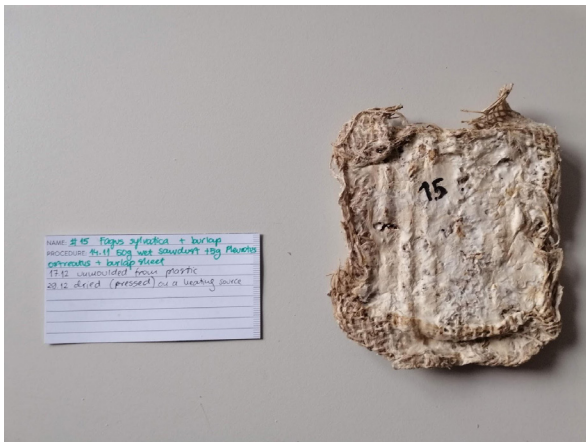 NAME: #15 Fagus sylvatica + burlap
PROCEDURE: 14.11 50g wet sawdust +5g Pleurotus
ostreatus + burlap sheet
17.12 unmoulded from plastic
20.12 dried (pressed) on a heating source
15